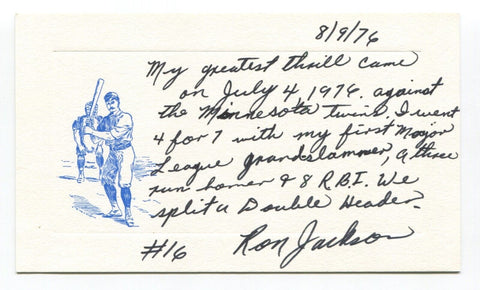 8/9/76
My greatest thrill came
on July 4, 1976. against
the Minnesota twins. I went
4 for 7 with my first Mayor
League grandslammer, a three
run homer & 8 R.B.I. We
split a Double Header.
#16 Ron Jackson